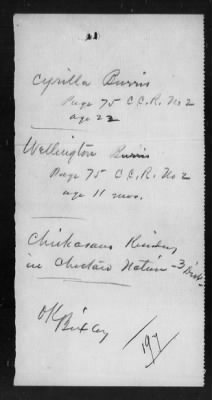 Cyrilla Burris
Page 75 C.C.R. No 2
age 22
Wellington Burris
Page 75 C.C.R. No 2
age 11 mos.
Chickasaws
in Choctaw Nation - 3
OK
Bixby
197